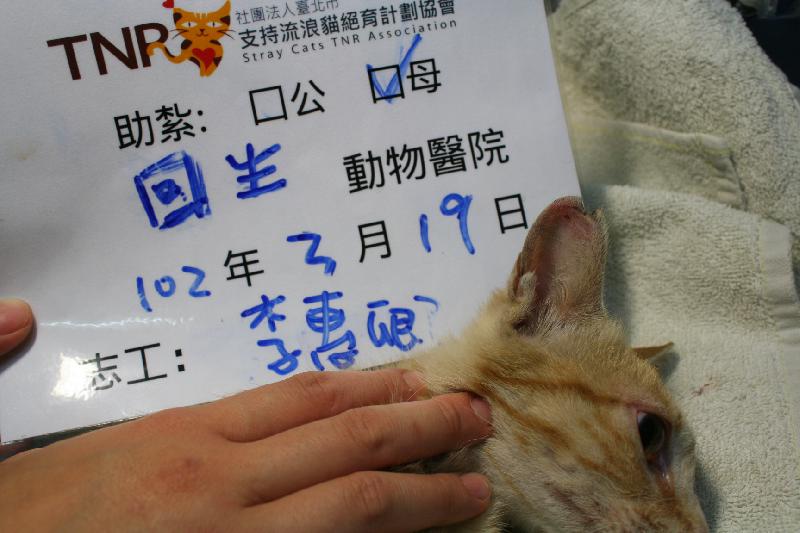 TNR
社團法人臺北市
支持流浪貓絕育計劃協會
Stray Cats TNR Association
助紮: □公 ☑母
回生 動物醫院
102年3月19日
志工: 李惠